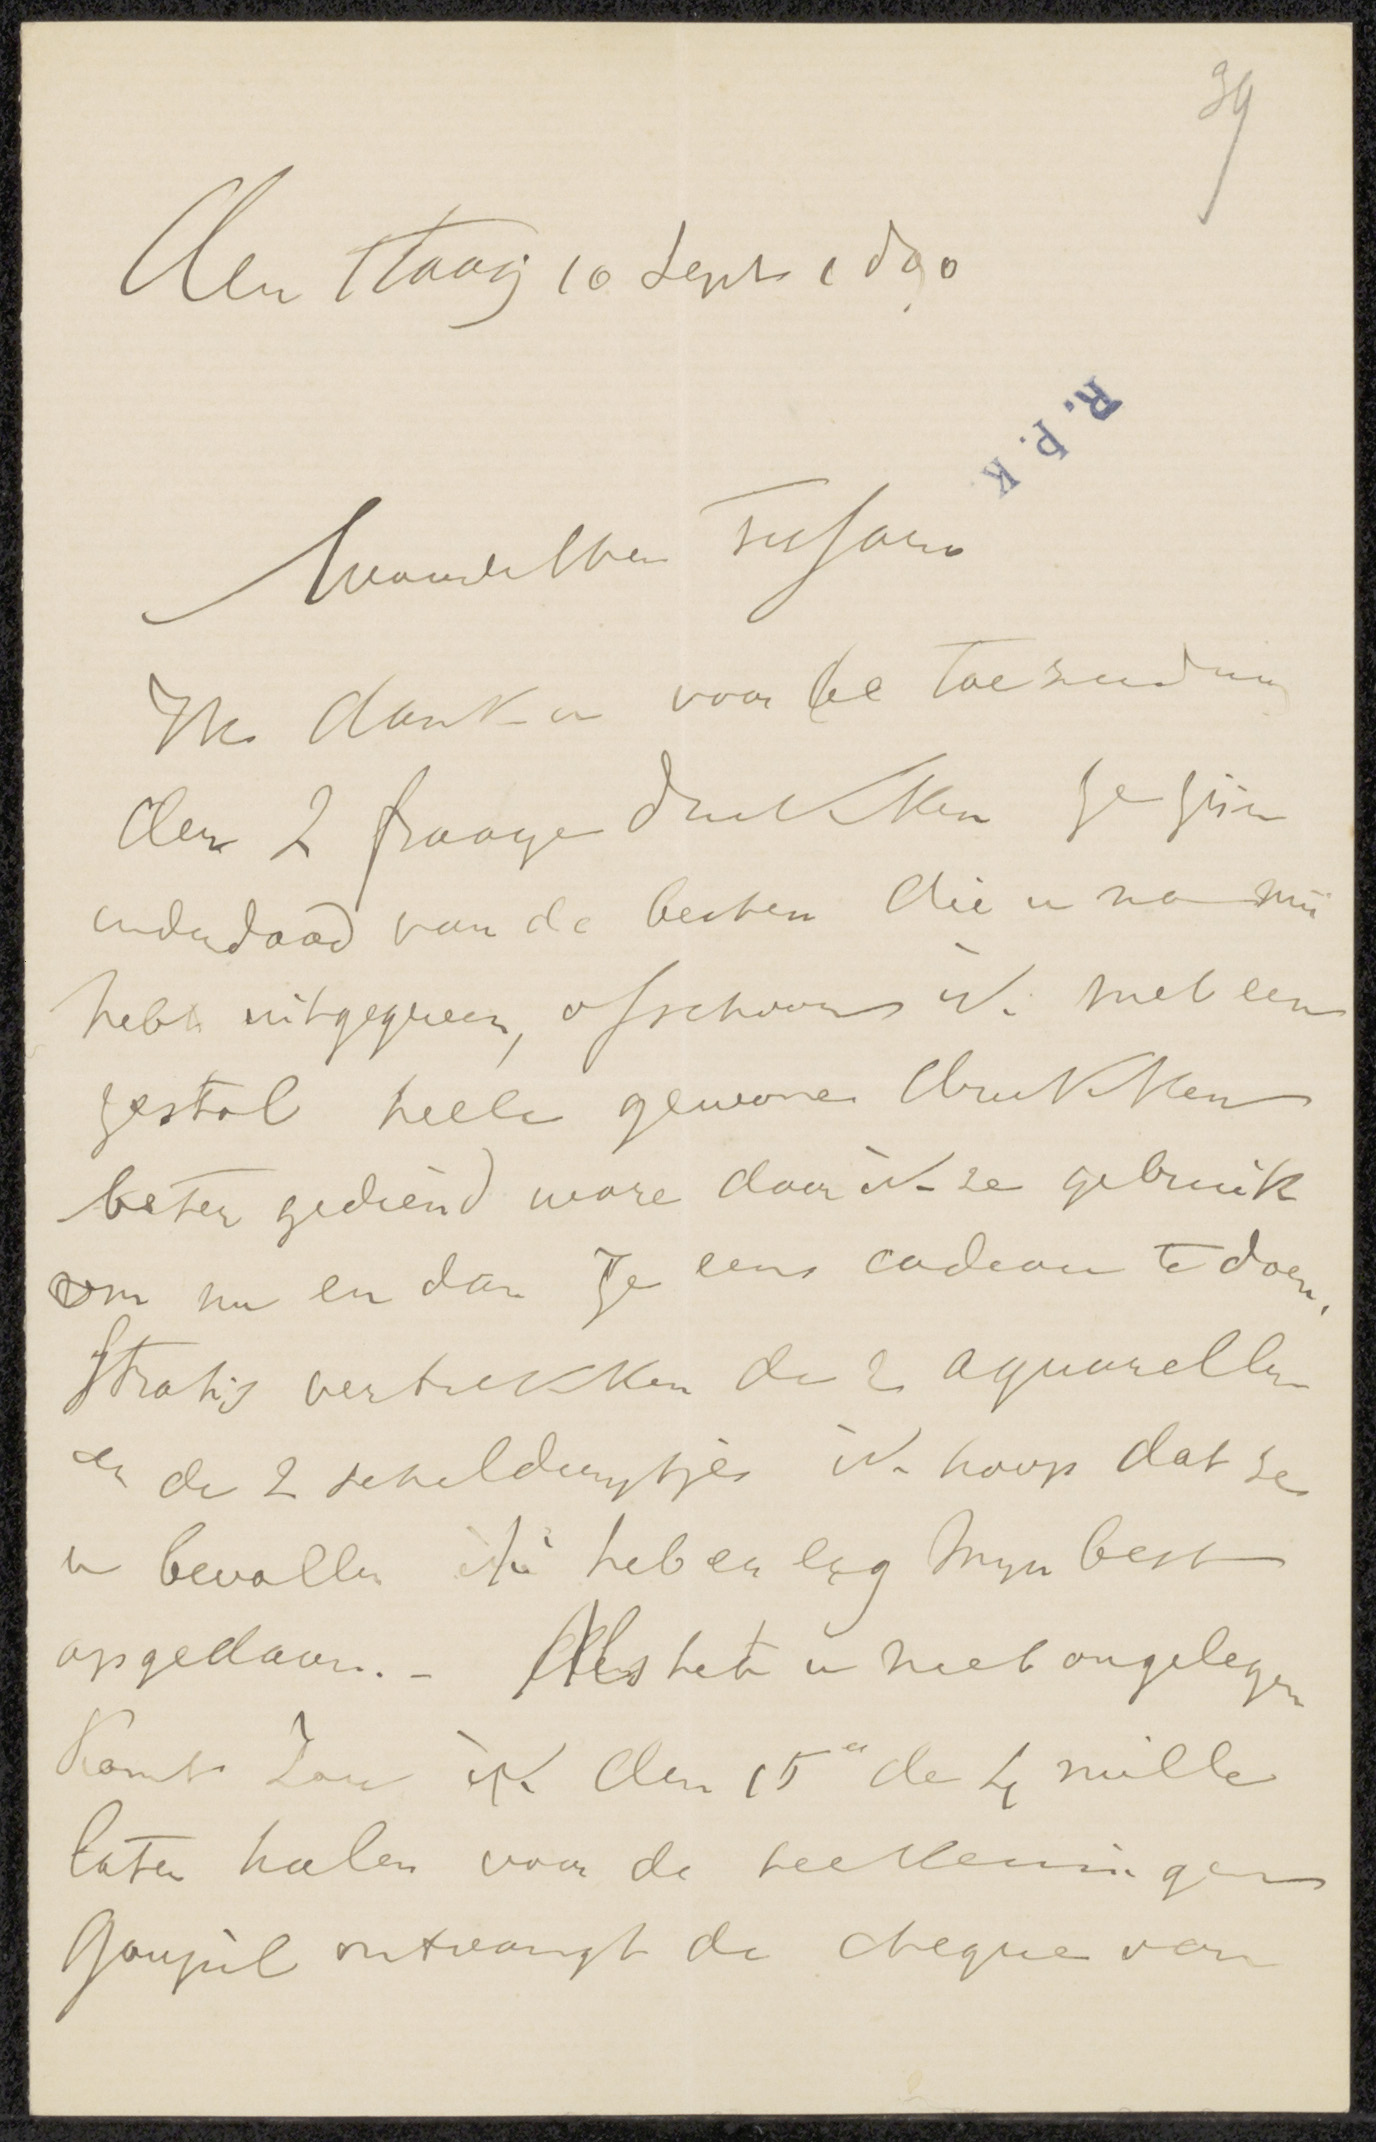 39
den Haag 10 Sept 1890
R. P. K.
Waarde Heer Tersteeg
Ik dank u voor de toezending
der 2 fraaye drukken ze zijn
inderdaad van de besten die u na mij
hebt uitgegeven, ofschoon ik met een
gestal heele gewone drukken
beter gediend ware daar ik ze gebruik
om nu en dan ze eens cadeau te doen.
Straks vertrekken de 2 aquarellen
en de 2 schilderijtjes ik hoop dat ze
u bevallen ik heb er erg mijn best
op gedaan. - Als het u niet ongelegen
komt zou ik den 15en de 4 mille
laten halen voor de teekeningen
Goupil ontvangt de cheque van